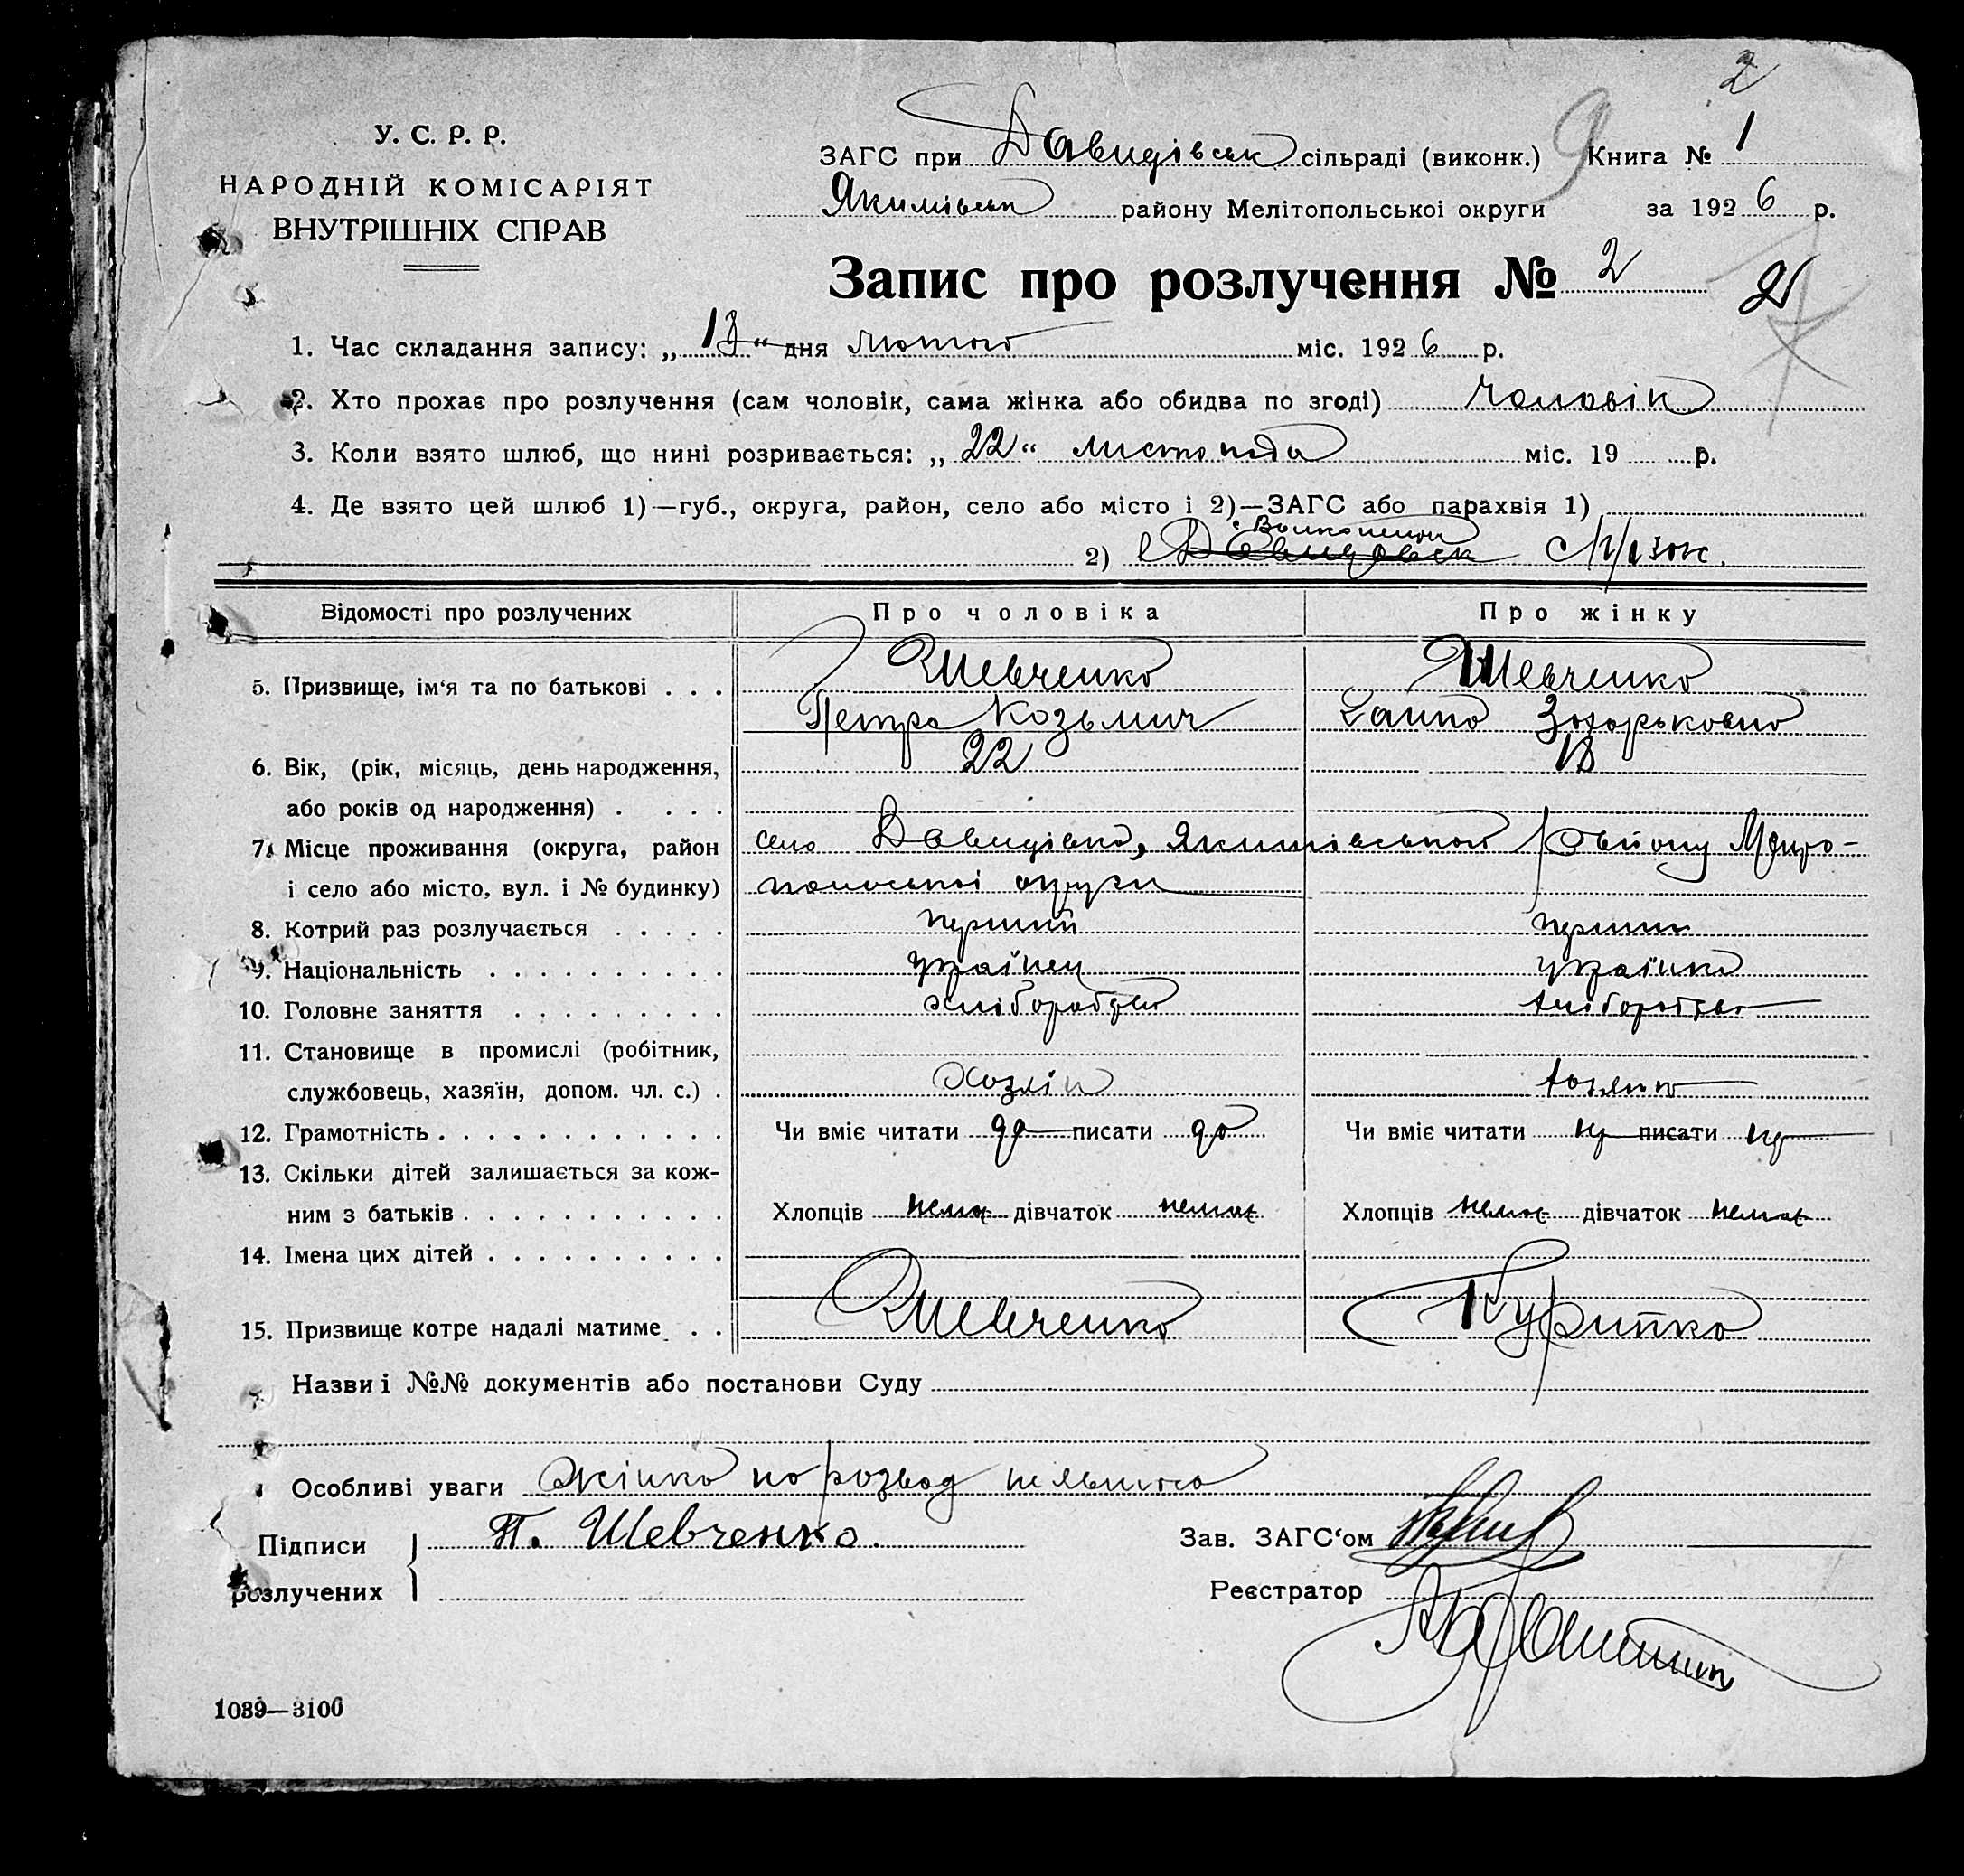 2
У. С. Р. Р.
НАРОДНІЙ КОМІСАРІЯТ
ВНУТРІШНІХ СПРАВ
ЗАГС при Давидівськ сільраді (виконк.) 9 Книга № 1
Якимівськ району Мелітопольської округи за 1926 р.
Запис про розлучення № 2 2
1. Час складання запису: „13“ дня лютого міс. 1926 р.
2. Хто прохає про розлучення (сам чоловік, сама жінка або обидва по згоді) чоловік
3. Коли взято шлюб, що нині розривається: „22“ листопада міс. 19 р.
4. Де взято цей шлюб 1)—губ., округа, район, село або місто і 2)—ЗАГС або парахвія 1)
2) Давидовськ
Відомості про розлучених Про чоловіка Про жінку
5. Призвище, ім‘я та по батькові . . . Шевченко Шевченко
Петро Козьмич Ганна
6. Вік, (рік, місяць, день народження, 22 18
або років од народження) . . . .
7. Місце проживання (округа, район село Давидівка, Якимівського району Меліто-
і село або місто, вул. і № будинку) польської округи
8. Котрий раз розлучається . . . . . перший перший
9. Національність . . . . . . . . . . українец українка
10. Головне заняття . . . . . . . . . хліборобство хліборобство
11. Становище в промислі (робітник,
службовець, хазяїн, допом. чл. с.) . хозяін
12. Грамотність . . . . . . . . . . . . Чи вміє читати да писати да Чи вміє читати ні писати ні
13. Скільки дітей залишається за кож-
ним з батьків . . . . . . . . . . . Хлопців немає дівчаток немає Хлопців немає дівчаток немає
14. Імена цих дітей . . . . . . . . . .
15. Призвище котре надалі матиме . . Шевченко Курипко
Назви і №№ документів або постанови Суду
Особливі уваги жінка на розвод не явилась
Підписи П. Шевченко. Зав. ЗАГС‘ом
розлучених Реєстратор
1039—3100